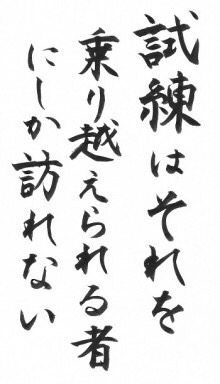 試練はそれを
乗り越えられる者
にしか訪れない